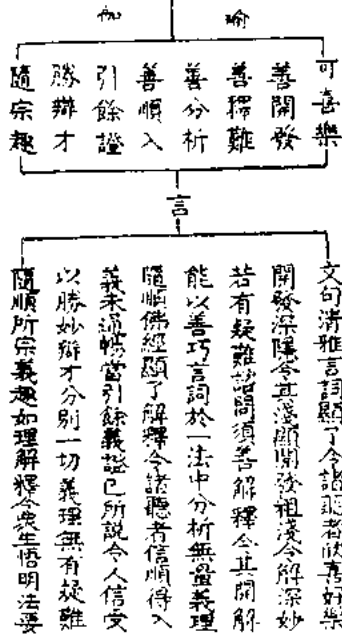 瑜伽
可喜樂
善開發
善釋難
善分析
善順入
引餘證
勝辯才
隨宗趣
言
文句清雅言詞顯了令諸聽者欣喜好樂
開發深隱令其淺顯開發祖淺令解深妙
若有疑難詰問須善解釋令其開解
能以善巧言詞於一法中分析無量義理
隨順佛經顯了解釋令諸聽者信順得入
義未通暢當引餘義證已所說令人信受
以勝妙辯才分別一切義理無有疑難
隨順所宗義趣如理解釋令衆生悟明法要